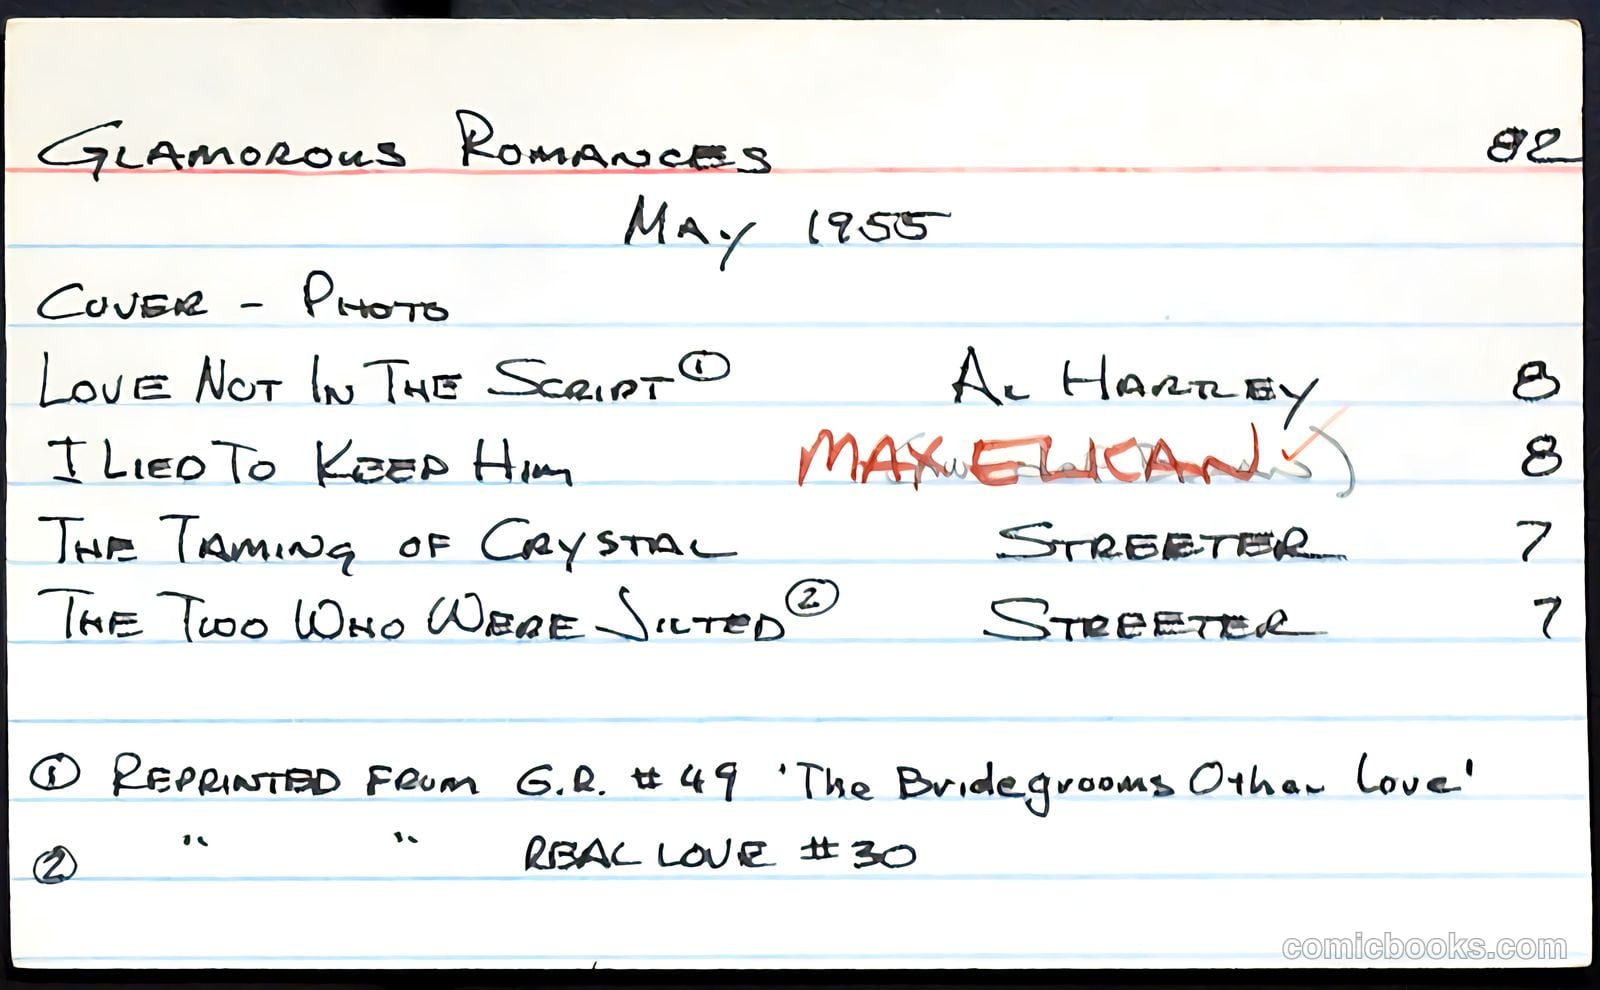 GLAMOROUS ROMANCES 82
MAY 1955
COVER - PHOTO
LOVE NOT IN THE SCRIPT ① AL HARTLEY 8
I LIED TO KEEP HIM MAX ELKAN ✓ 8
THE TAMING OF CRYSTAL STREETER 7
THE TWO WHO WERE JILTED ② STREETER 7
① REPRINTED FROM G.R. #49 'The Bridegrooms Other Love'
② " " REAL LOVE #30
comicbooks.com